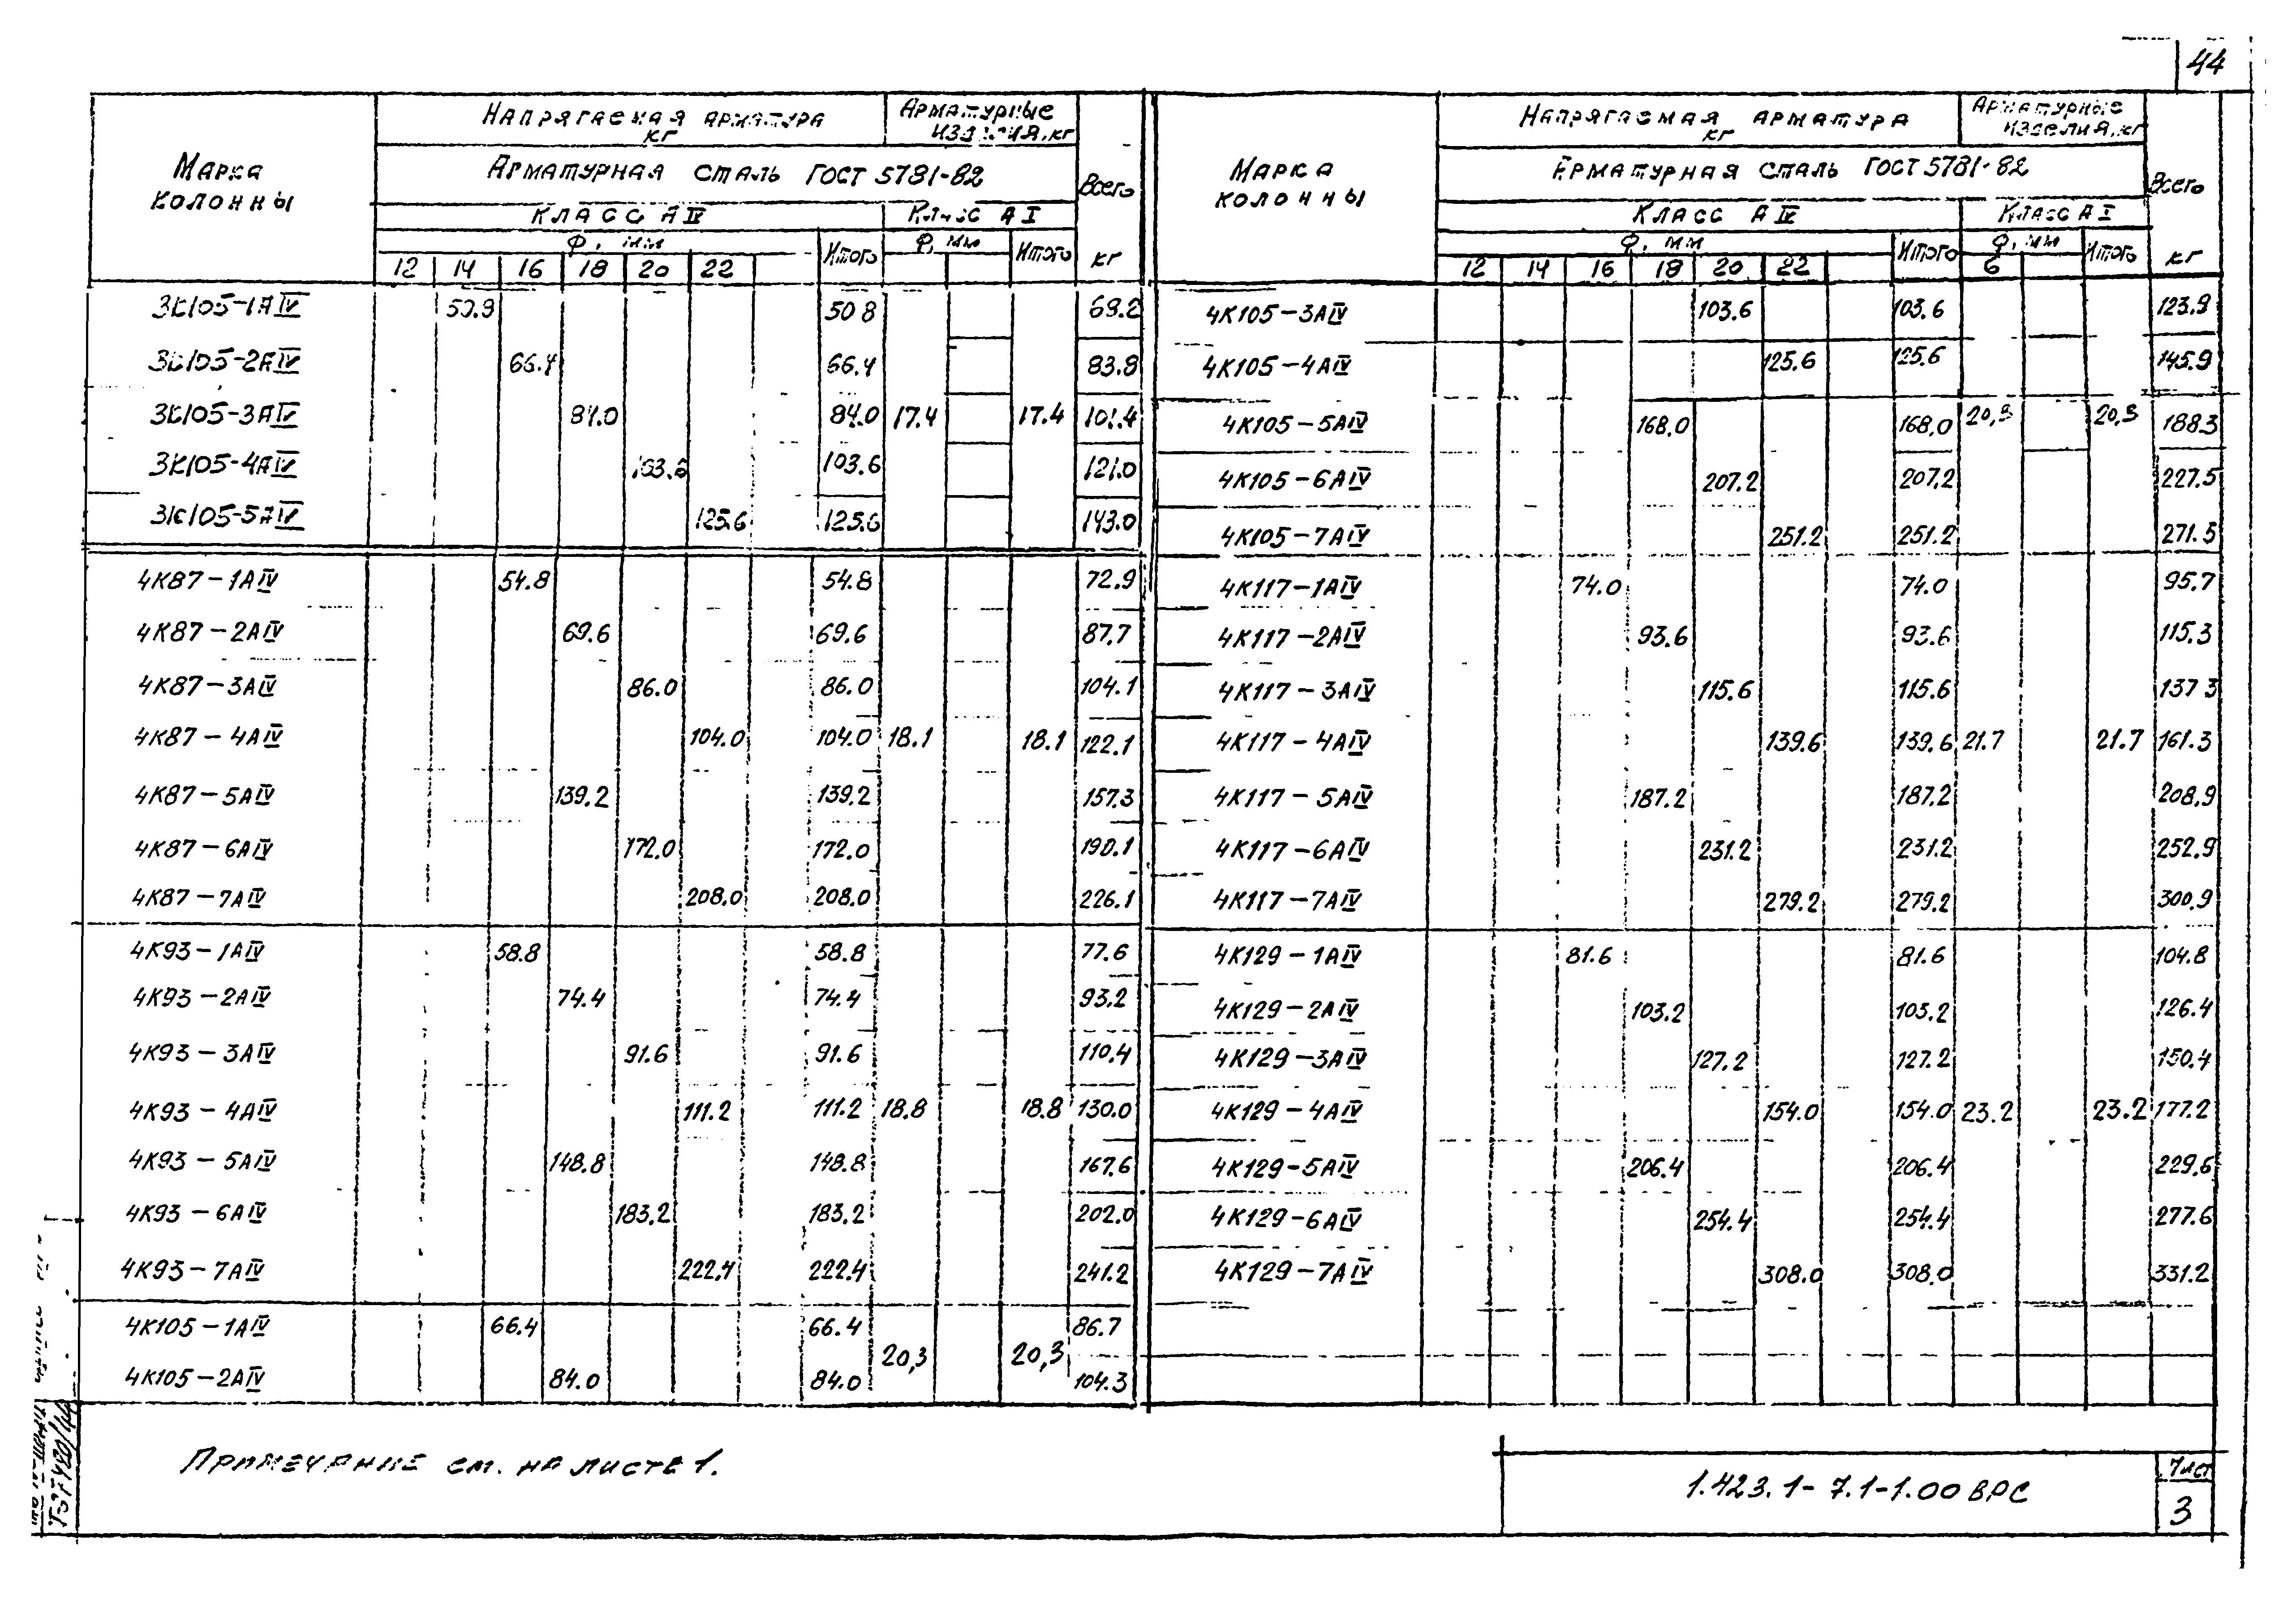 44
Марка колонны Напрягаемая арматура кг Арматурные изделия, кг Всего кг
Арматурная сталь ГОСТ 5781-82
Класс АIV Класс АI
Ф, мм Итого Ф, мм Итого
12 14 16 18 20 22
3К105-1АIV 50.8 50 8 68.2
3К105-2АIV 66.4 66.4 83.8
3К105-3АIV 84.0 84.0 17.4 17.4 101.4
3К105-4АIV 103.6 103.6 121.0
3К105-5АIV 125.6 125.6 143.0
4К87-1АIV 54.8 54.8 72.9
4К87-2АIV 69.6 69.6 87.7
4К87-3АIV 86.0 86.0 104.1
4К87-4АIV 104.0 104.0 18.1 18.1 122.1
4К87-5АIV 139.2 139.2 157.3
4К87-6АIV 172.0 172.0 190.1
4К87-7АIV 208.0 208.0 226.1
4К93-1АIV 58.8 58.8 77.6
4К93-2АIV 74.4 74.4 93.2
4К93-3АIV 91.6 91.6 110.4
4К93-4АIV 111.2 111.2 18.8 18.8 130.0
4К93-5АIV 148.8 148.8 167.6
4К93-6АIV 183.2 183.2 202.0
4К93-7АIV 222.4 222.4 241.2
4К105-1АIV 66.4 66.4 86.7
20,3 20,3
4К105-2АIV 84.0 84.0 104.3
Марка колонны Напрягаемая арматура кг Арматурные изделия, кг Всего кг
Арматурная сталь ГОСТ 5781-82
Класс АIV Класс АI
Ф, мм Итого Ф, мм Итого
12 14 16 18 20 22 6
4К105-3АIV 103.6 103.6 123.9
4К105-4АIV 125.6 125.6 145.9
4К105-5АIV 168.0 168.0 20,3 20,3 188.3
4К105-6АIV 207.2 207.2 227.5
4К105-7АIV 251.2 251.2 271.5
4К117-1АIV 74.0 74.0 95.7
4К117-2АIV 93.6 93.6 115.3
4К117-3АIV 115.6 115.6 137 3
4К117-4АIV 139.6 139.6 21.7 21.7 161.3
4К117-5АIV 187.2 187.2 208.9
4К117-6АIV 231.2 231.2 252.9
4К117-7АIV 279.2 279.2 300.9
4К129-1АIV 81.6 81.6 104.8
4К129-2АIV 103.2 103.2 126.4
4К129-3АIV 127.2 127.2 150.4
4К129-4АIV 154.0 154.0 23.2 23.2 177.2
4К129-5АIV 206.4 206.4 229.6
4К129-6АIV 254.4 254.4 277.6
4К129-7АIV 308.0 308.0 331.2
Примечание см. на листе 1.
1.423.1-7.1-1.00 ВРС
Лист
3